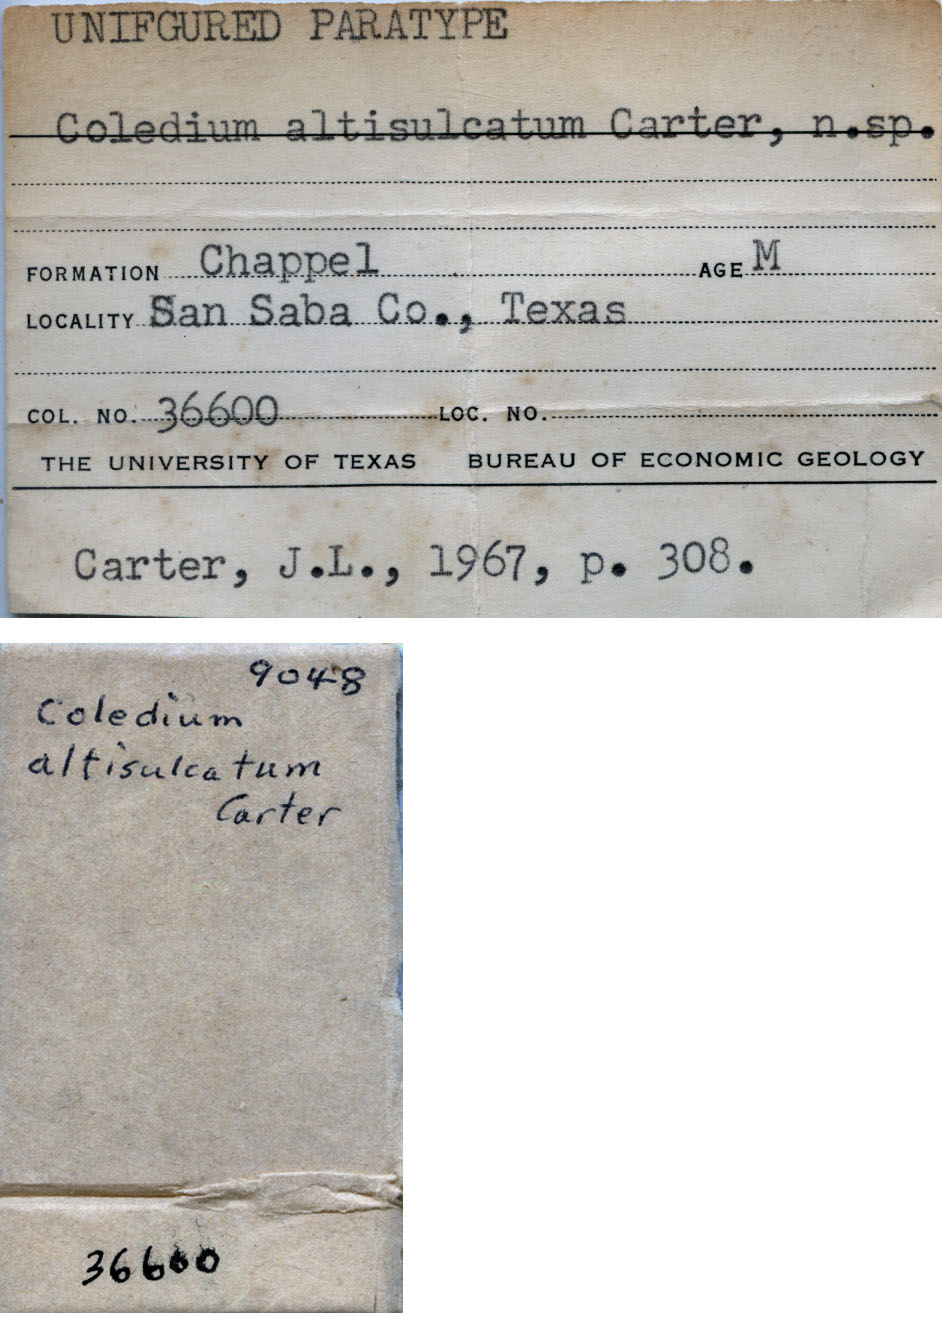 UNIFGURED PARATYPE
Coledium altisulcatum Carter, n.sp.
FORMATION Chappel AGE M
LOCALITY San Saba Co., Texas
COL. NO. 36600 LOC. NO.
THE UNIVERSITY OF TEXAS BUREAU OF ECONOMIC GEOLOGY
Carter, J.L., 1967, p. 308.
9048
Coledium
altisulcatum
Carter
36600